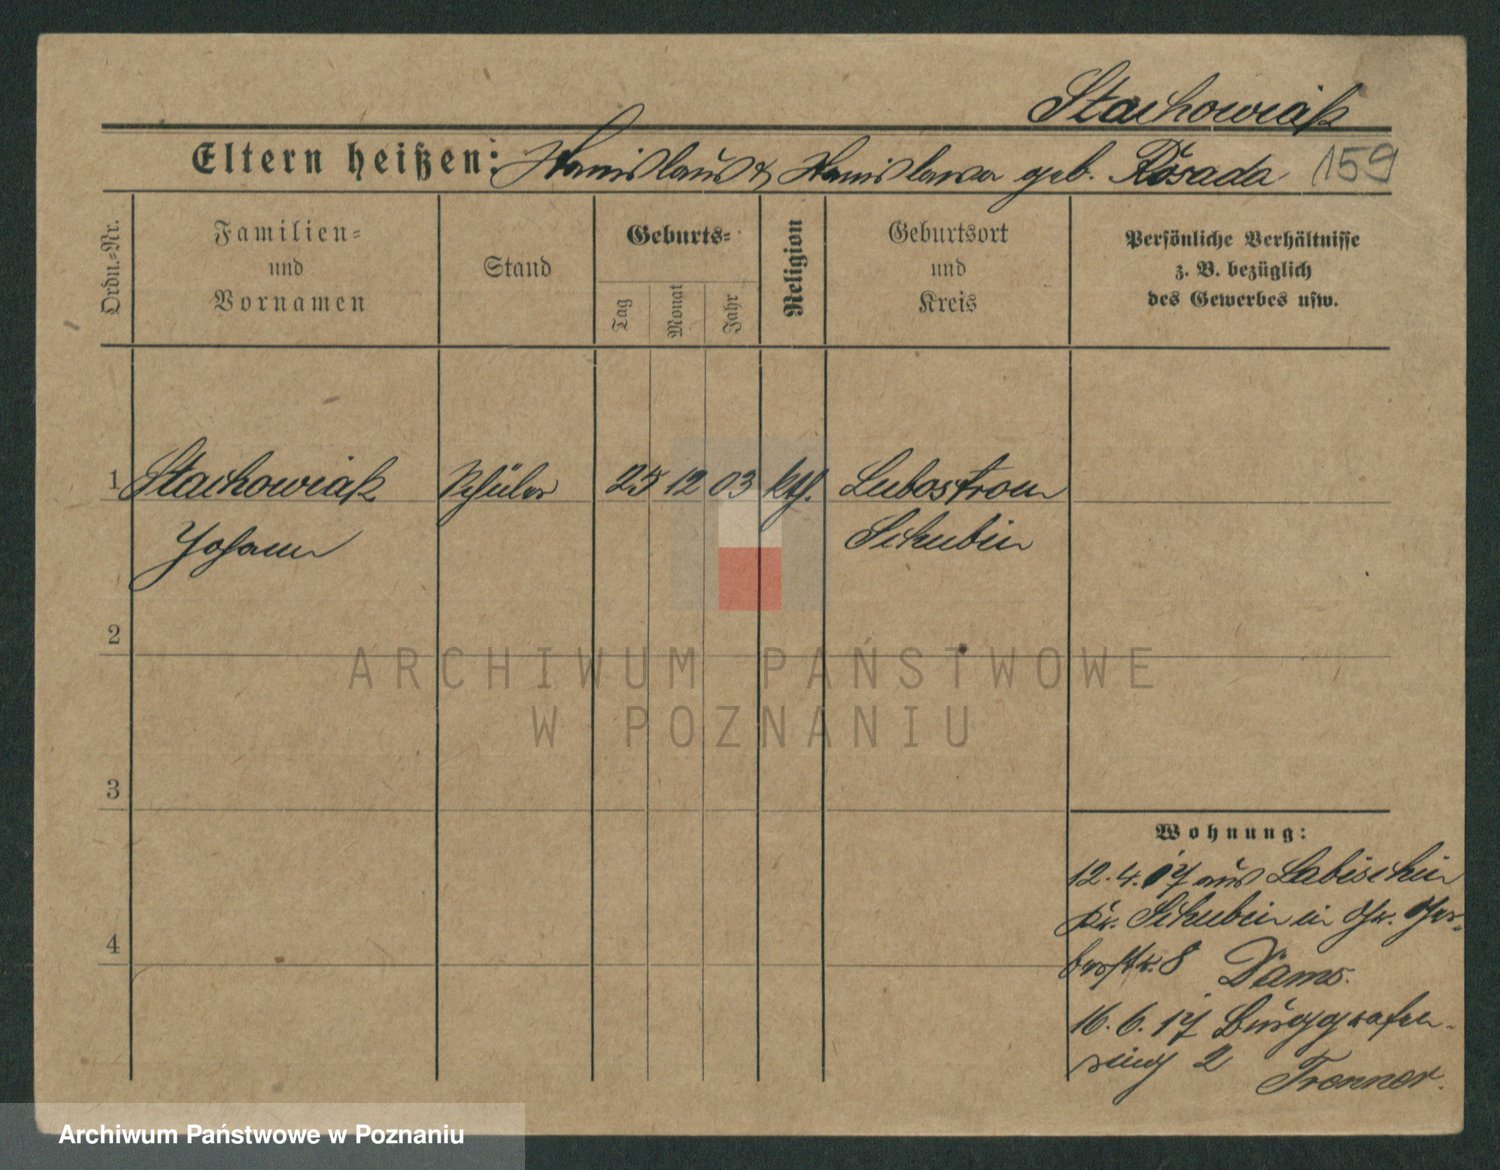 Stachowiak
Eltern heißen: Stanislaus & Stanislawa geb. Rosada 159
Ordn.-Nr.
Familien-
und
Vornamen
Stand
Geburts-
Tag
Monat
Jahr
Religion
Geburtsort
und
Kreis
Persönliche Verhältnisse
z. B. bezüglich
des Gewerbes usw.
1 Stachowiak Schüler 25 12 03 kth. Lubostron
Johann Schubin
2
ARCHIWUM PAŃSTWOWE
W POZNANIU
3
Wohnung:
12.4.17 aus Labischin
Kr. Schubin in Gr. Ger-
berstr. 8 Dams.
4
16.6.17 Burggrafen-
ring 2 Trenner.
Archiwum Państwowe w Poznaniu